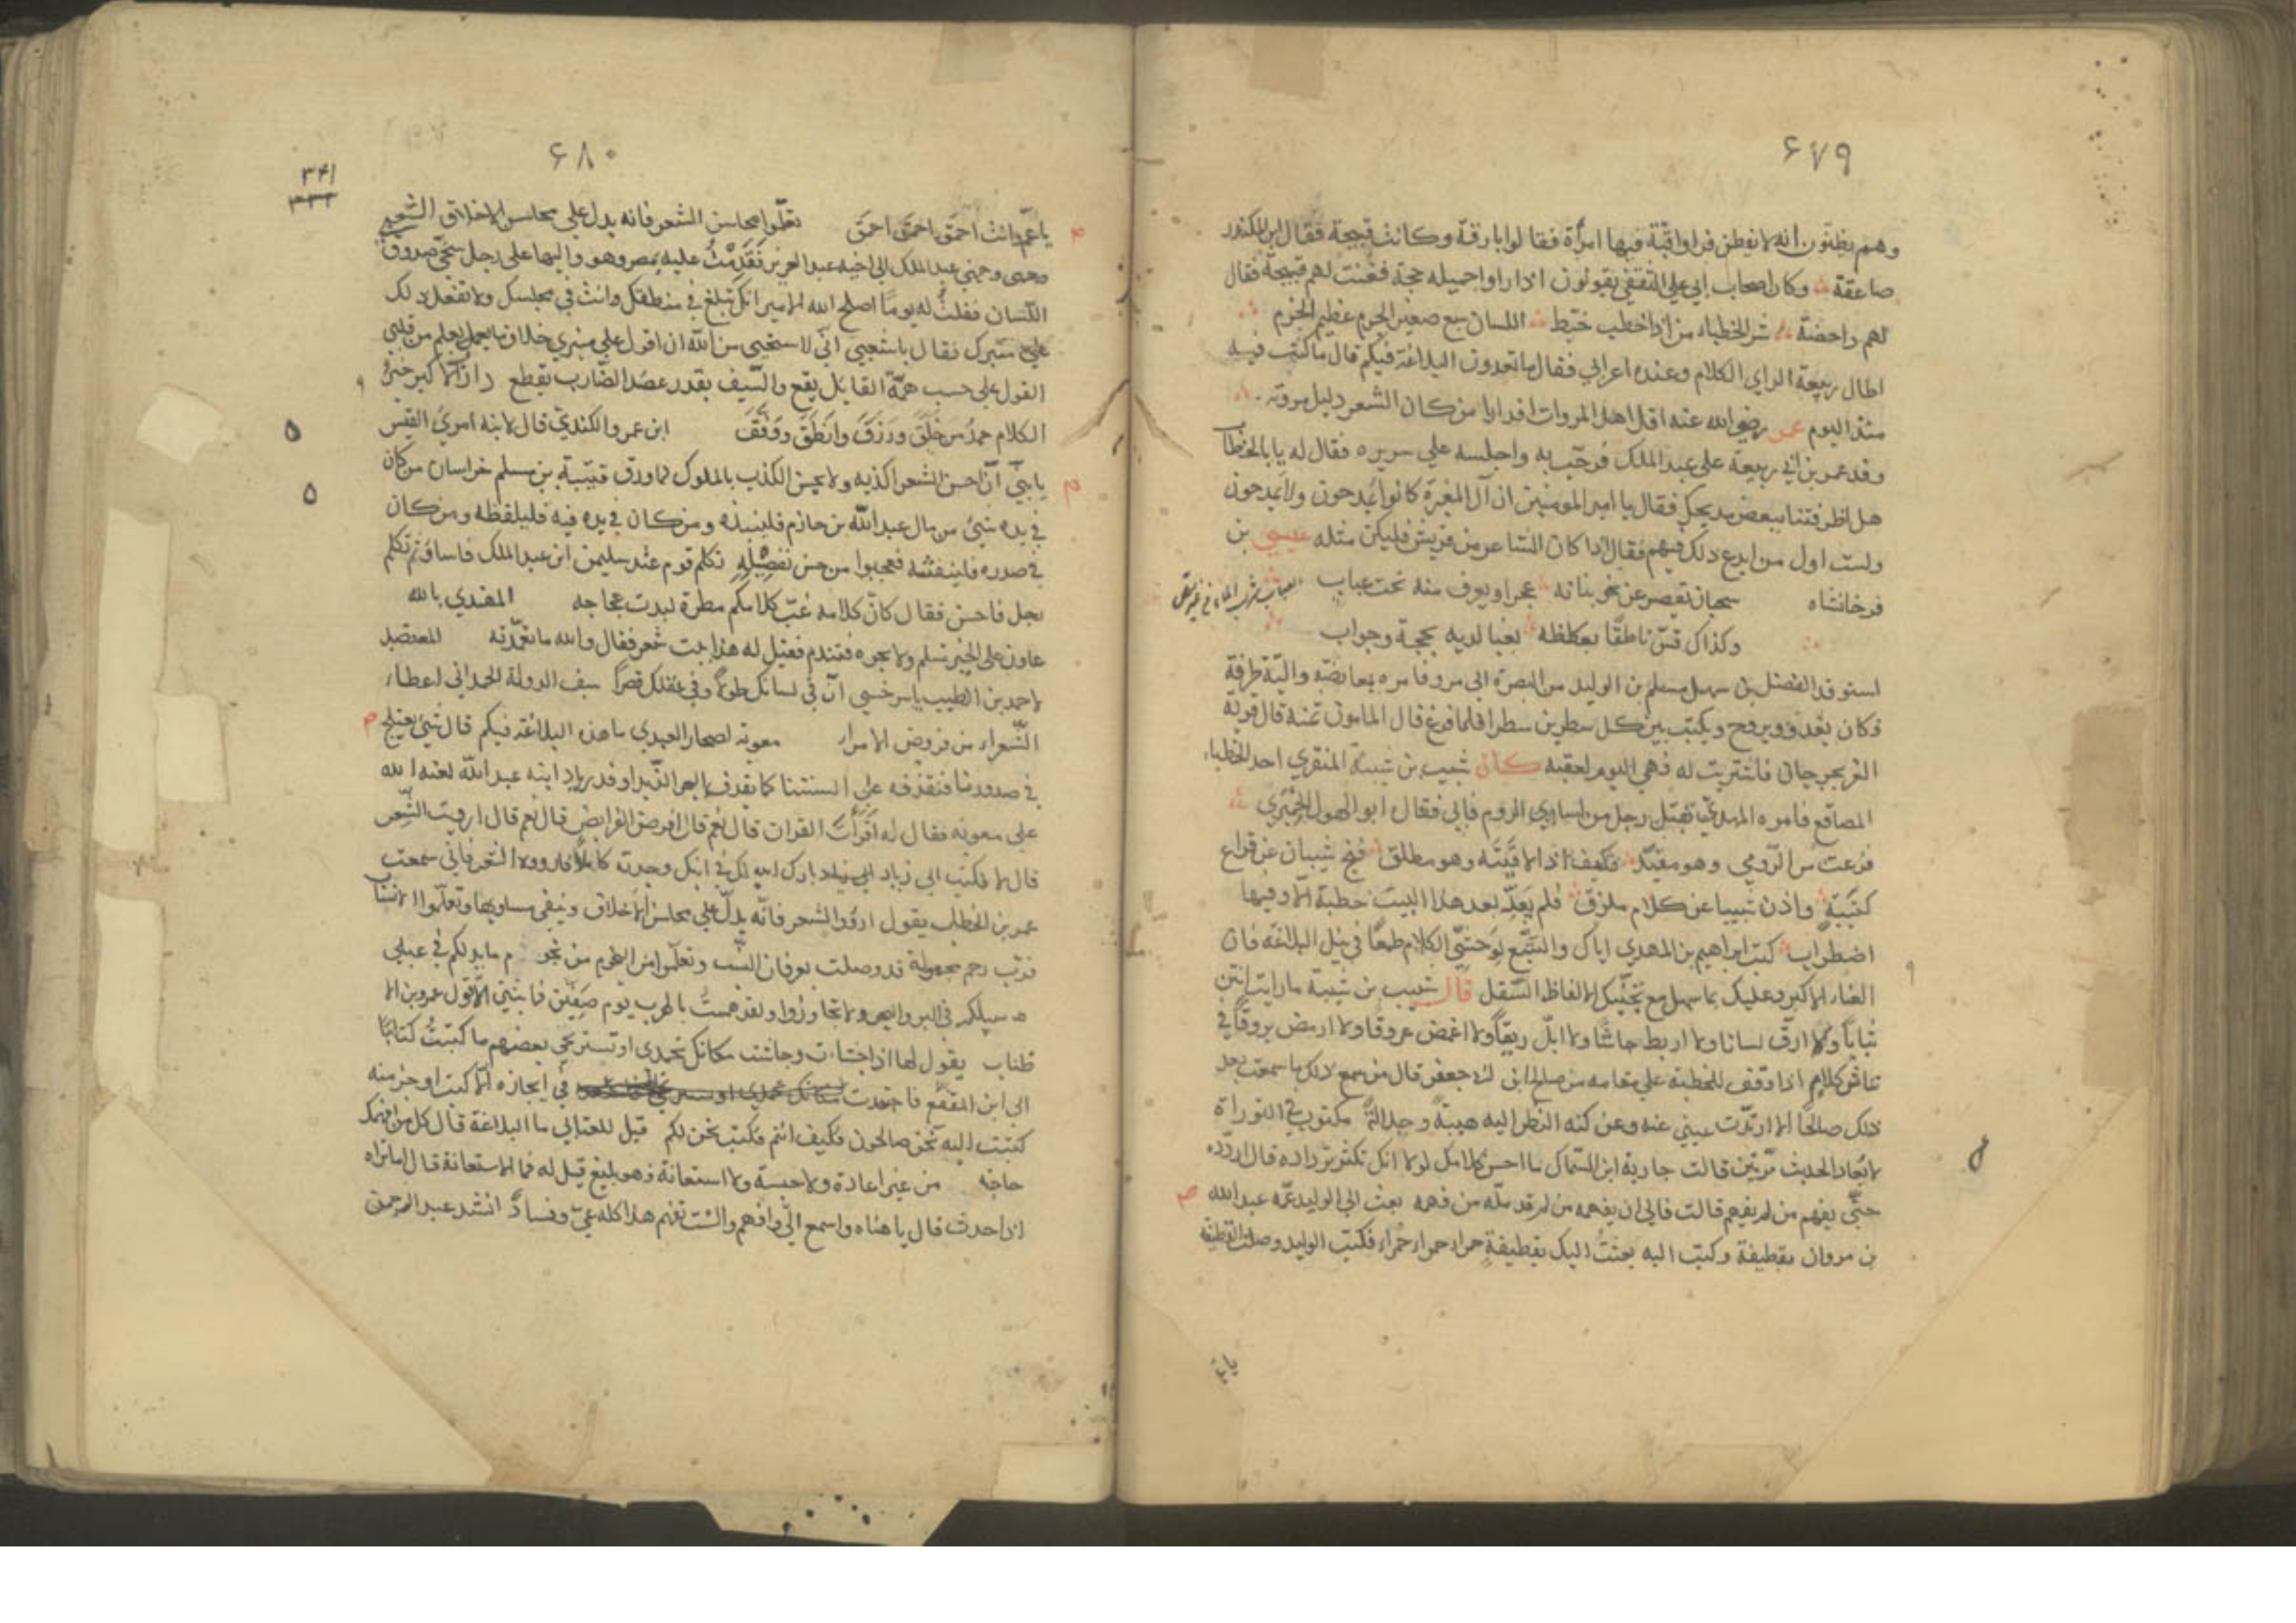 ٦٧٩
وهم يظنون انه لا يفطن فراوا قبّة فيها امرأة فقالوا بارقة وكانت قبيحة فقال ابن المكندر
صاعقة وكان اصحاب ابي علي الثقفي يقولون اذا راوا جميله حجة فعنت لهم قبيحة فقال
لهم داحضة شر الخطباء من اذا خطب خبط اللسان سبع صغير الجرم عظيم الجرم
اطال ربيعة الراي الكلام وعنده اعرابي فقال ما تعدون البلاغة فيكم قال ما كنت فيه
منذ اليوم عمر رضي الله عنه اقل اهل المروات اقدارا من كان الشعر دليل مروته
وفد عمر بن ابي ربيعة على عبد الملك فرحّب به واجلسه علي سريره فقال له يا با الخطاب
هل اطرفتنا ببعض مديحك فقال يا امير المومنين ان آل المغيرة كانوا يُمدحون ولا يَمدحون
ولست اول من ابدع ذلك فيهم فقال اذا كان الشاعر من قريش فليكن مثله عيسي بن
فرخانشاه سحبان تقصر عن بحور بيانه عجرا ويغرف منه تحت عباب
وكذاك قسّ ناطقًا بعكاظه لعيا لديه بحجة وجواب
استوفد الفضل بن سهل مسلم بن الوليد من البصرة الي مرو فامره
فكان يغدو ويروح ويكتب بين كل سطرين سطرا فلما فرغ قال المامون تمنه قال قرية
بجرجان فاشتريت له فهي اليوم لعقبه كان شبيب بن شيبة المنقري احد الخطباء
المصاقع فامره المهدي بقتل رجل من اساري الروم فابي فقال ابو الهول الحميري
فزعت من الرومي وهو مقيّد فكيف اذا لاقيته وهو مطلق فنح شبيبا عن قراع
كتيبة واذن شبيبا عن كلام ملزق فلم يعدّ بعد هذا البيت خطبة الا وفيها
اضطراب كتب ابراهيم بن المهدي اياك والتتبّع لوحشيّ الكلام طمعًا في نيل البلاغة فان
العناء الاكبر وعليك بما سهل مع تجنّبك الالفاظ السفل قال شبيب بن شيبة ما رايت ابين
بيانًا ولا ارقّ لسانا ولا اربط جاشا ولا ابلّ ريقًا ولا اغمض عروقا ولا ارمض بروقًا في
كلام اذا وقف للخطبة علي مقامه من صالح ابن ابي جعفر قال من سمع ذلك ما سمعت بعد
ذلك صالحًا الا ارتدّت عيني عنه وعن كنه النظر اليه هيبةً وجلالةً مكتوب في التوراة
لا يعاد الحديث مرّتين قالت جارية ابن السمّاك ما احسن كلامك لولا انك تكثر ترداده قال اردّده
حتّي يفهم من لم يفهم قالت فالي ان يفهمه من لم قد ملّه من فهمه بعث الي الوليد عمّه عبد الله
بن مروان بقطيفة وكتب اليه بعثتُ اليك بقطيفةٍ حمراء حمراء حمراء فكتب الوليد وصلت القطيفة
يا عمّ
٦٨٠
٣٤١
يا عمّ وانت احمق احمق احمق تعلّموا محاسن الشعر فانه يدل علي محاسن الاخلاق الشعبي
وجهني عبد الملك الي اخيه عبد العزيز فَقَدِمْتُ عليه بمصر وهو واليها على رجل سخيّ صدوق
اللّسان فقلت له يومًا اصلح الله الامير انك تبلغ في منطقك وانت في مجلسك ولا تفعل ذلك
علي منبرك فقال يا شعبي انّي لاستحيي من الله ان اقول علي منبري خلاف ما يعلم من قلبي
القول علي حسب همّة القايل يقع والسيف بقدر عضد الضارب يقطع
الكلام حمدُ من خلق ورزق وانطق ووفّق ابن عمرو الكندي قال لابنه امرئ القيس
يا بنيّ انّ احسن الشعر اكذبه ولا يحسن الكذب بالملوك لما ورد قتيبة بن مسلم خراسان من كان
في يده شيئ من مال عبد الله بن حازم فلينبذه ومن كان في يده فيه فليلفظه ومن كان
في صدره فلينفثه فعجبوا من حسن تفصيله تكلم قوم عند سليمن ابن عبد الملك فاساؤا ثم تكلم
رجل فاحسن فقال كانّ كلامه غبّ كلامكم مطرة لبدت عجاجه المهتدي بالله
عاون علي الخير تسلم ولا تجره فتندم فقيل له هذا بيت شعر فقال والله ما تعمّدته المعتضد
لاحمد بن الطيب يا سرخسي انّ في لسانك طولًا وفي عقلك قصرًا سيف الدولة الحمداني اعطاء
الشعراء من فروض الامراء معوية لصحار العبدي ما هذه البلاغة فيكم قال شيئ يعتلج
في صدورنا فنقذفه علي السنتنا كما يقذف البحر الزّبد اوفد زياد ابنه عبد الله لعنه الله
على معوية فقال له اقرأتَ القران قال نعم قال افرضت الفرايض قال نعم قال ارويت الشعر
قال لا فكتب الي زياد بارك الله لك في ابنك وجدته كاملًا فاروه الشعر فاني سمعت
عمر بن الخطاب يقول اروُوا الشعر فانّه يدلّ علي محاسن الاخلاق وينفي مساويها وتعلّموا الانساب
فربّ رحم مجهولة قد وصلت بعرفان النّسب وتعلّموا من النجوم من نجو م ما يدلكم في
سبيلكم في البر والبحر ولا تجاوزوا ولقد هممتُ بالهرب يوم صفين فما ثبتني الا قول عمرو بن الا
طناب يقول لها اذا جشات وجاشت مكانك تحمدي او تستريحي بعضهم ما كتبتُ كتابًا
الي ابن المقفع فاجتهدت في ايجازه الا كتب اوجز منه
كتبت اليه نحن صالحون فكيف انتم فكتب نحن لكم قيل للعتابي ما البلاغة قال كل من افهمك
حاجة من غير اعادة ولا حبسة ولا استعانة فهو بليغ قيل له فما الاستعانة قال اما تراه
اذا حدث قال يا هناه واسمع الي وافهم والست تفهم هذا كله عيّ وفسادٌ انشد عبد الرحمن